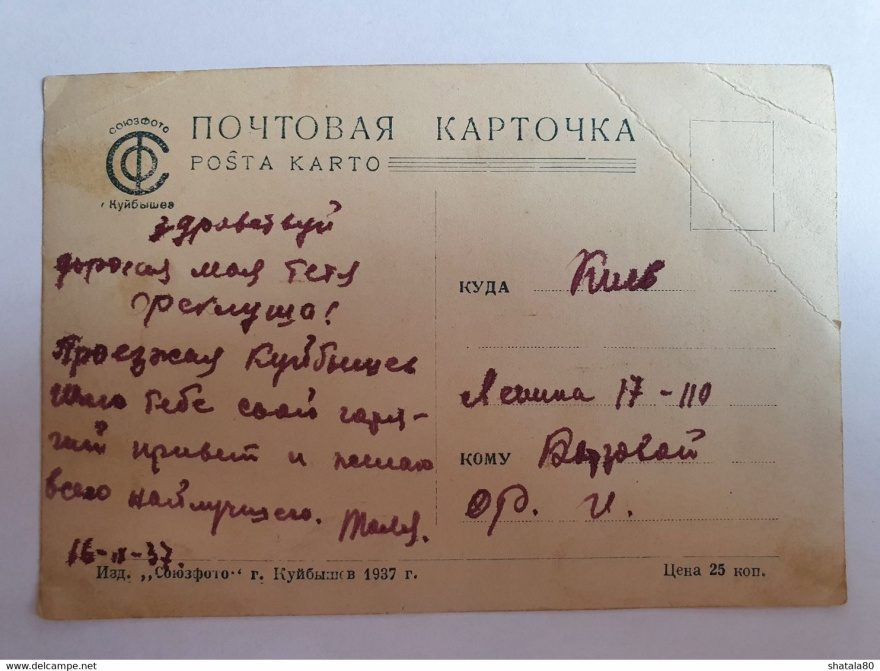 СОЮЗФОТО
г Куйбышев
ПОЧТОВАЯ КАРТОЧКА
POŜTA KARTO
здравствуй
дорогая моя тетя
Феклуша!
Проезжая Куйбышев
Шлю тебе свой горя-
чий привет и желаю
всего найлучшего. Толя.
16-II-37.
КУДА Киев
Ленина 17-110
КОМУ
Ф. И.
Изд. „Союзфото" г. Куйбышев 1937 г.
Цена 25 коп.
hipostcard.com
shatala80